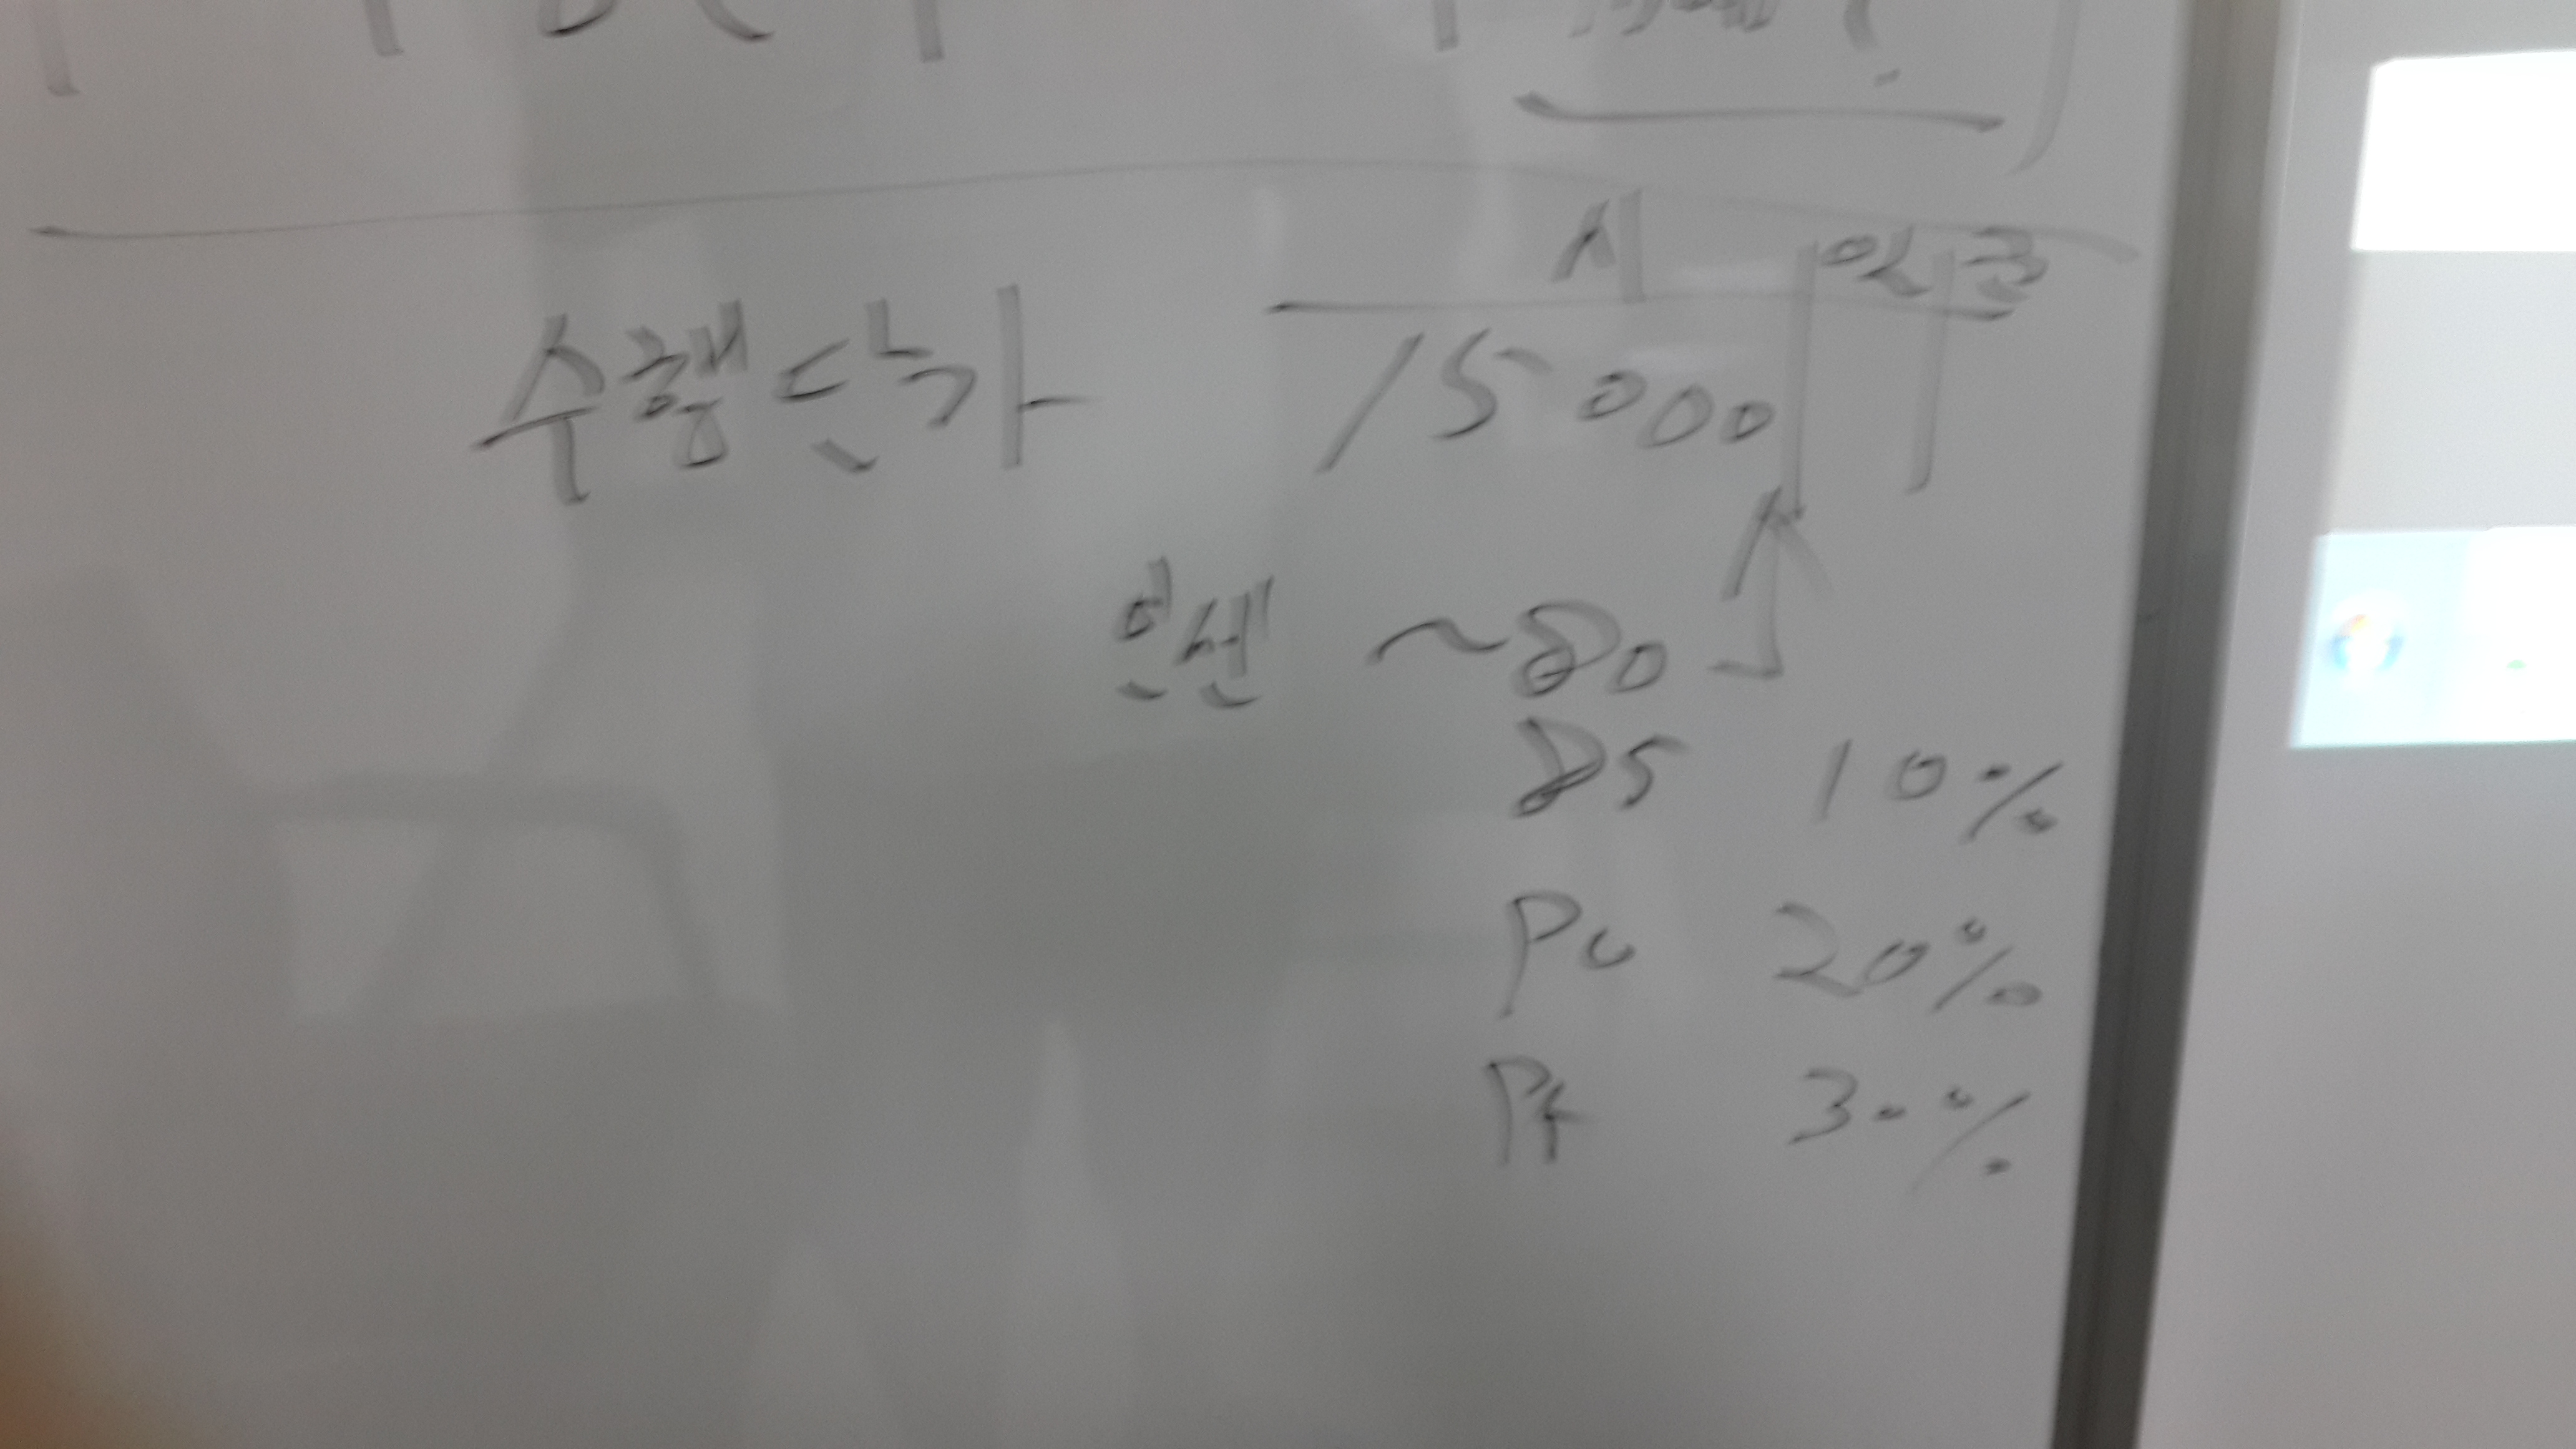 시
수행단가 15000
인센 ~80
85 10%
90 20%
95 30%